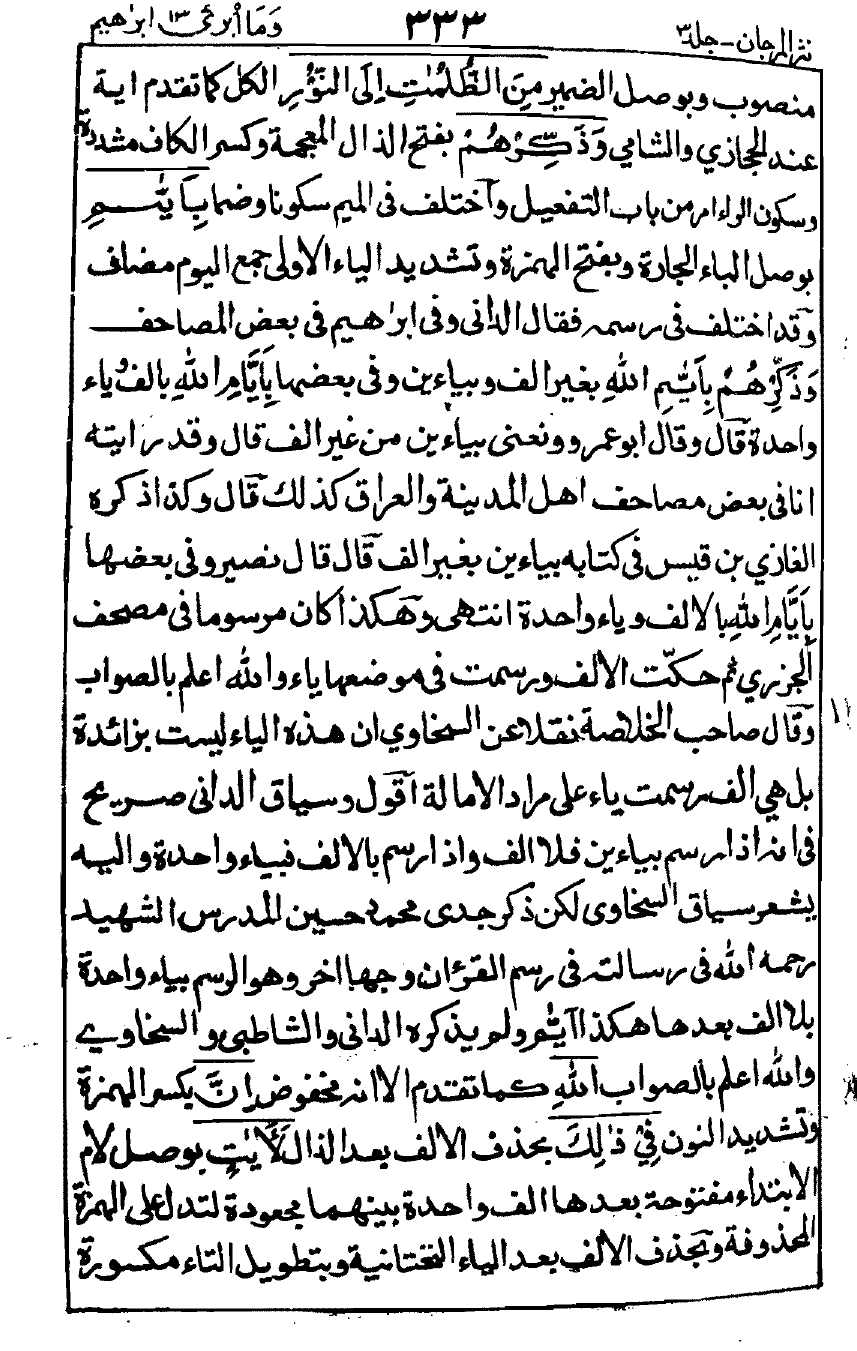 نثر المرجان - جلد ٣ ٣٣٣ وَمَا أُبَرِّئُ ١٣ ابرٰهيم
منصوب وبوصل الضمير مِنَ الظُّلُمٰتِ اِلَى النُّوْرِ الكل كما تقدم اية
عند الحجازي والشامي وَذَكِّرْهُمْ بفتح الذال المعجمة وكسر الكاف مشددة
وسكون الراء امر من باب التفعيل وآختلف فى الميم سكونا وضما بِاَيّٰىمِ
بوصل الباء الجارة وبفتح الهمزة وتشديد الياء الاولى جمع اليوم مضاف
وقد اختلف فى رسمه فقال الدانى وفى ابرٰهيم فى بعض المصاحف
وَذَكِّرْهُمْ بِاَيّٰىمِ اللهِ بغير الف وبياءين وفى بعضها بِاَيَّامِ اللهِ بالف وياء
واحدة قآل وقال ابو عمرو ونعنى بياءين من غير الف قال وقد رايته
انا فى بعض مصاحف اهل المدينة والعراق كذلك قآل وكذا ذكره
الغازي بن قيس فى كتابه بياءين بغير الف قآل قال نصير وفى بعضها
بِاَيَّامِ اللهِ بالالف وياء واحدة انتهى وهٓكذا كان مرسوما فى مصحف
الجزري ثم حكّت الالف ورسمت فى موضعها ياء والله اعلم بالصواب
وقآل صاحب الخلاصة نقلا عن السخاوي ان هذه الياء ليست بزائدة
بل هي الف رسمت ياء على مراد الامالة آقول وسياق الدانى صريح
فى انه اذا رسم بياءين فلا الف واذا رسم بالالف فبياء واحدة واليه
يشعر سياق السخاوى لكن ذكر جدى محمد حسين المدرس الشهيد
رحمه الله فى رسالته فى رسم القرءان وجها اخر وهو الرسم بياء واحدة
بلا الف بعدها هكذا اَيّٰم ولم يذكره الدانى والشاطبى والسخاوي
والله اعلم بالصواب اللهِ كما تقدم الا انه مخفوض اِنَّ بكسر الهمزة
وتشديد النون فِيْ ذٰلِكَ بحذف الالف بعد الذال لَاٰيٰتٍ بوصل لام
الابتداء مفتوحة بعدها الف واحدة بينهما مجعودة لتدل على الهمزة
المحذوفة وبحذف الالف بعد الياء التحتانية وبتطويل التاء مكسورة